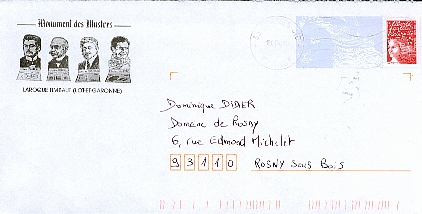 Monument des Illustres
LAROQUE TIMBAUT (LOT-ET-GARONNE)
Dominique DIDIER
Domaine de Rosny
6, rue Edmond Michelet
93110 ROSNY SOUS BOIS